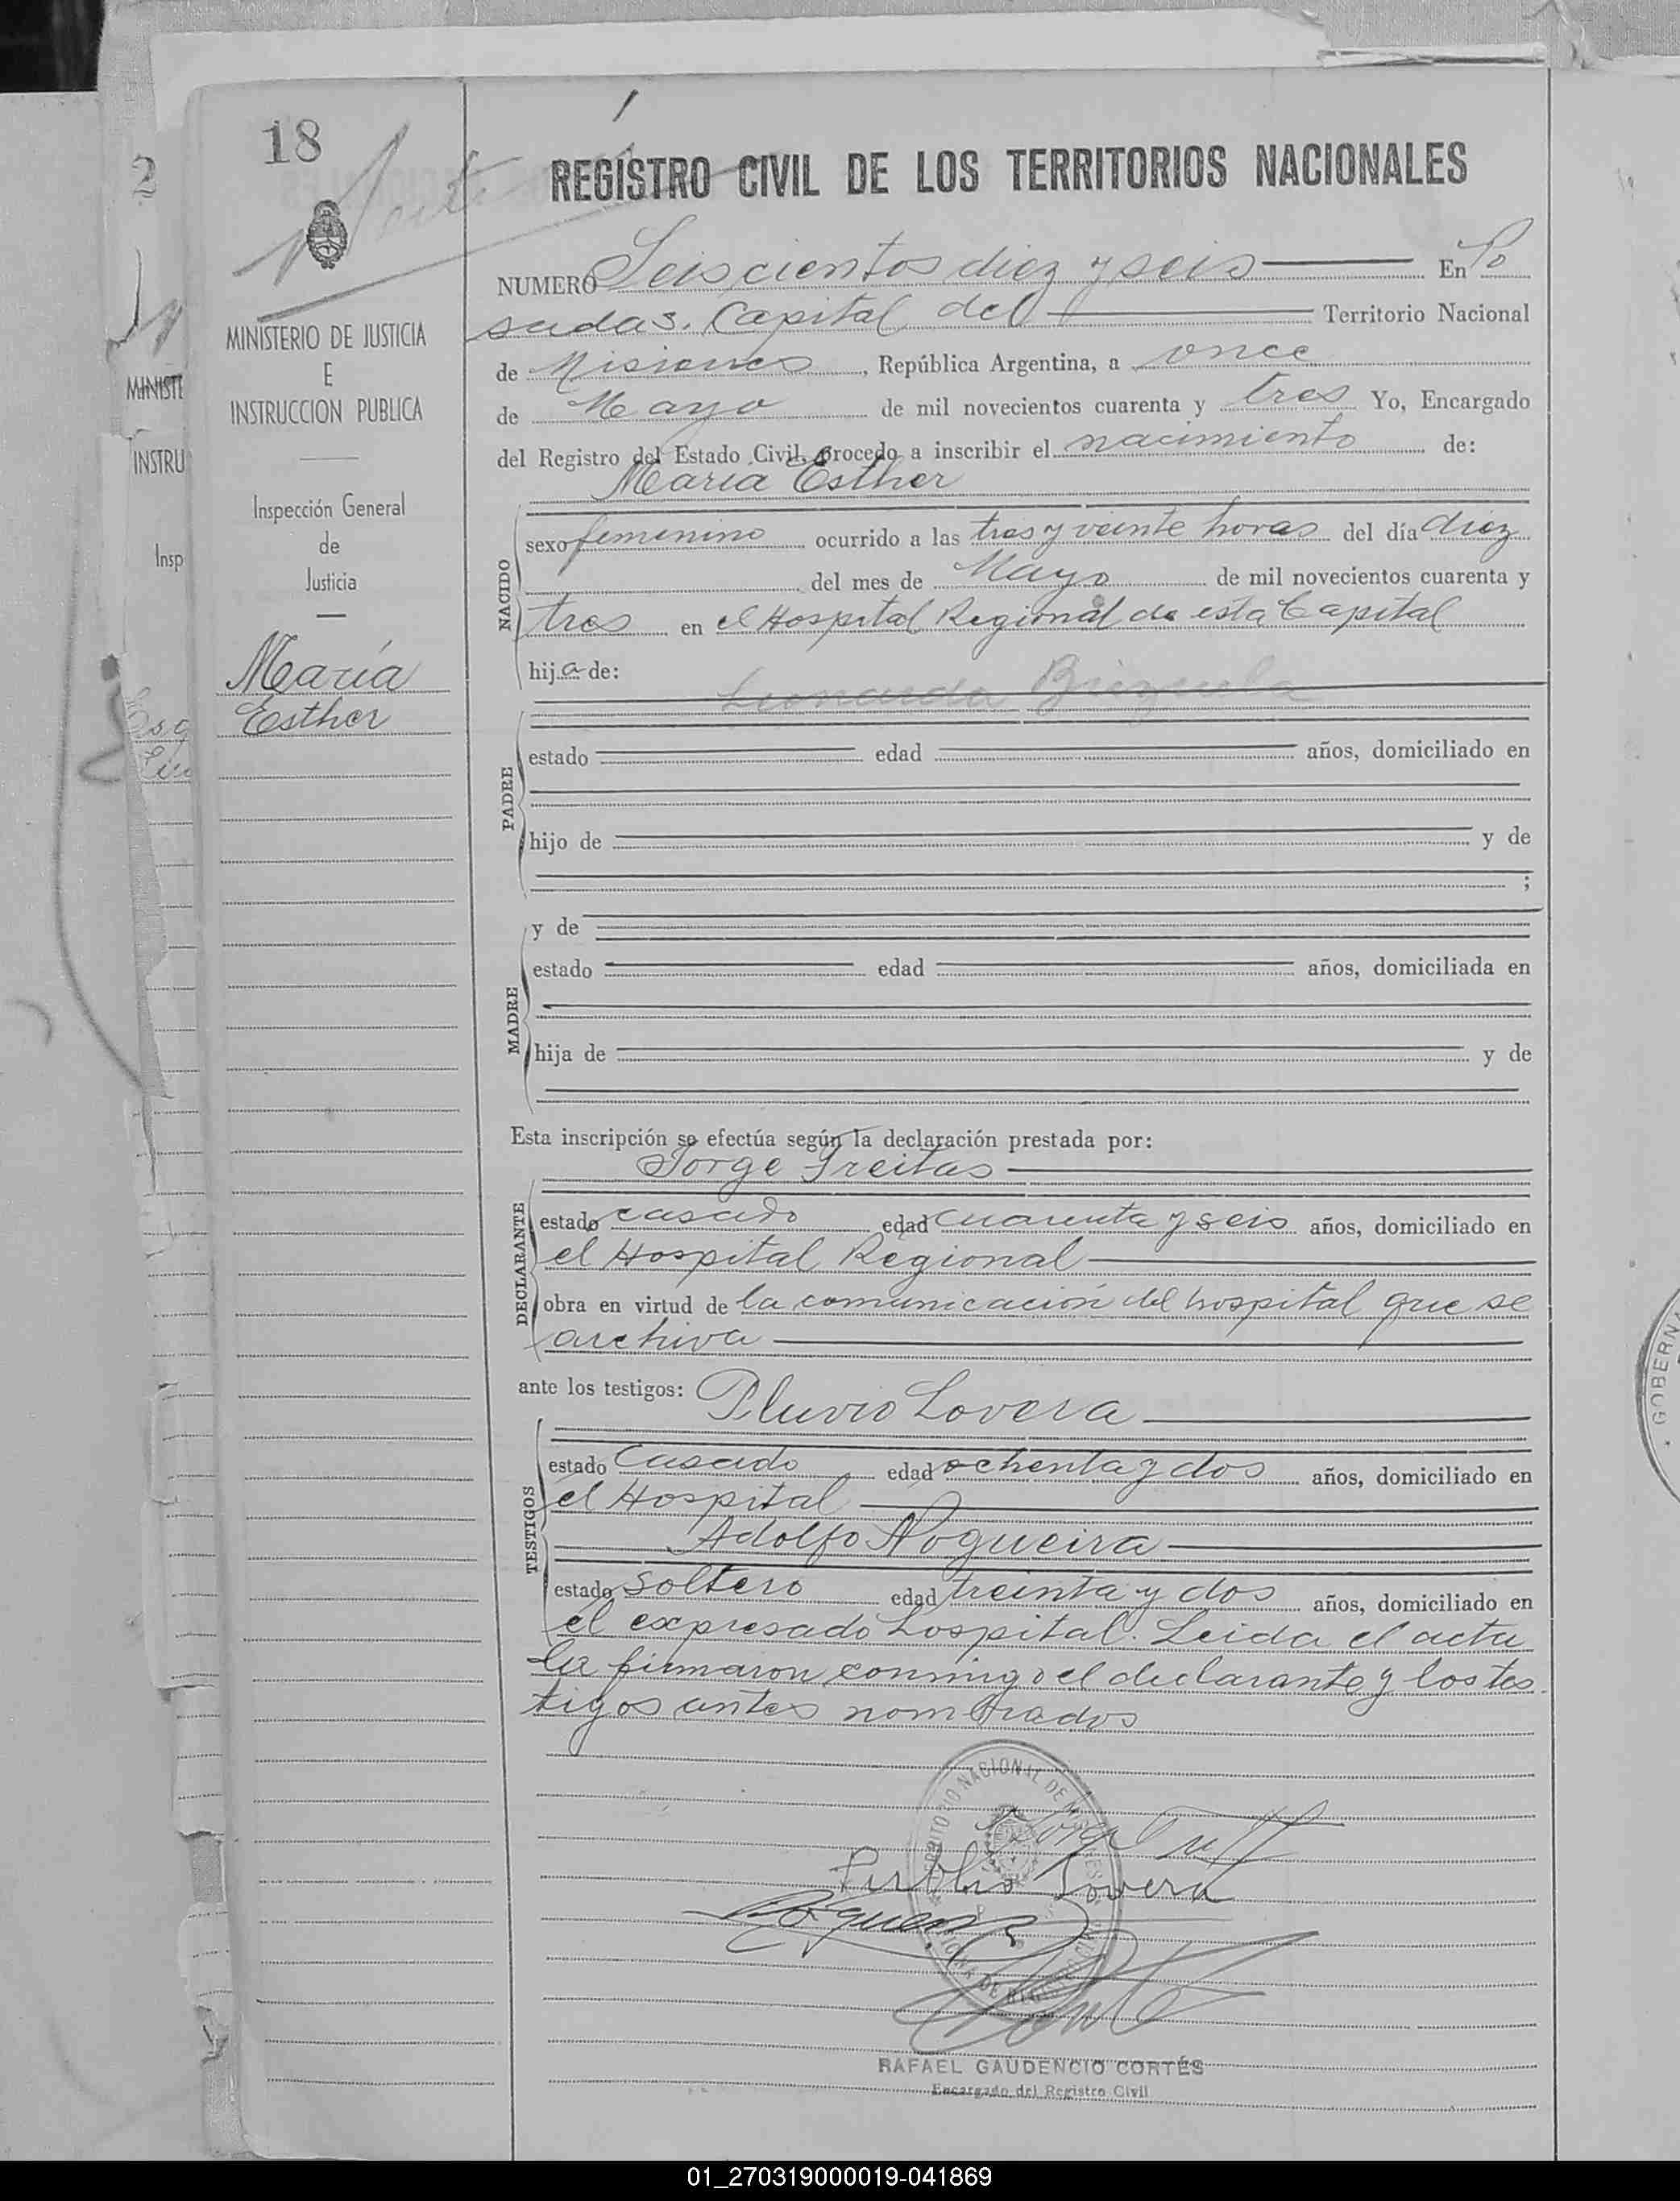 18
2
REGISTRO CIVIL DE LOS TERRITORIOS NACIONALES
NUMERO Seiscientos diez y seis En Po
sadas. Capital del Territorio Nacional
de Misiones, República Argentina, a once
de Mayo de mil novecientos cuarenta y tres Yo, Encargado
del Registro del Estado Civil, procedo a inscribir el nacimiento de:
María Esther
NACIDO
sexo femenino ocurrido a las tres y veinte horas del día diez
del mes de Mayo de mil novecientos cuarenta y
tres en el Hospital Regional de esta Capital
hija de:
Leonarda
PADRE
estado edad años, domiciliado en
hijo de y de
;
MADRE
y de
estado edad años, domiciliada en
hija de y de
Esta inscripción se efectúa según la declaración prestada por:
Jorge Freitas
DECLARANTE
estado casado edad cuarenta y seis años, domiciliado en
el Hospital Regional
obra en virtud de la comunicación del hospital que se
archiva
ante los testigos: Pluvio Lovera
TESTIGOS
estado Casado edad ochenta y dos años, domiciliado en
el Hospital
Adolfo Nogueira
estado soltero edad treinta y dos años, domiciliado en
el expresado hospital. Leida el acta
la firmaron conmigo el declarante y los tes
tigos antes nombrados
Lovera
RAFAEL GAUDENCIO CORTÉS
Encargado del Registro Civil
MINISTERIO DE JUSTICIA
E
INSTRUCCION PUBLICA
Inspección General
de
Justicia
María
Esther
MINISTE
INSTRU
Insp
GOBERN
01_270319000019-041869